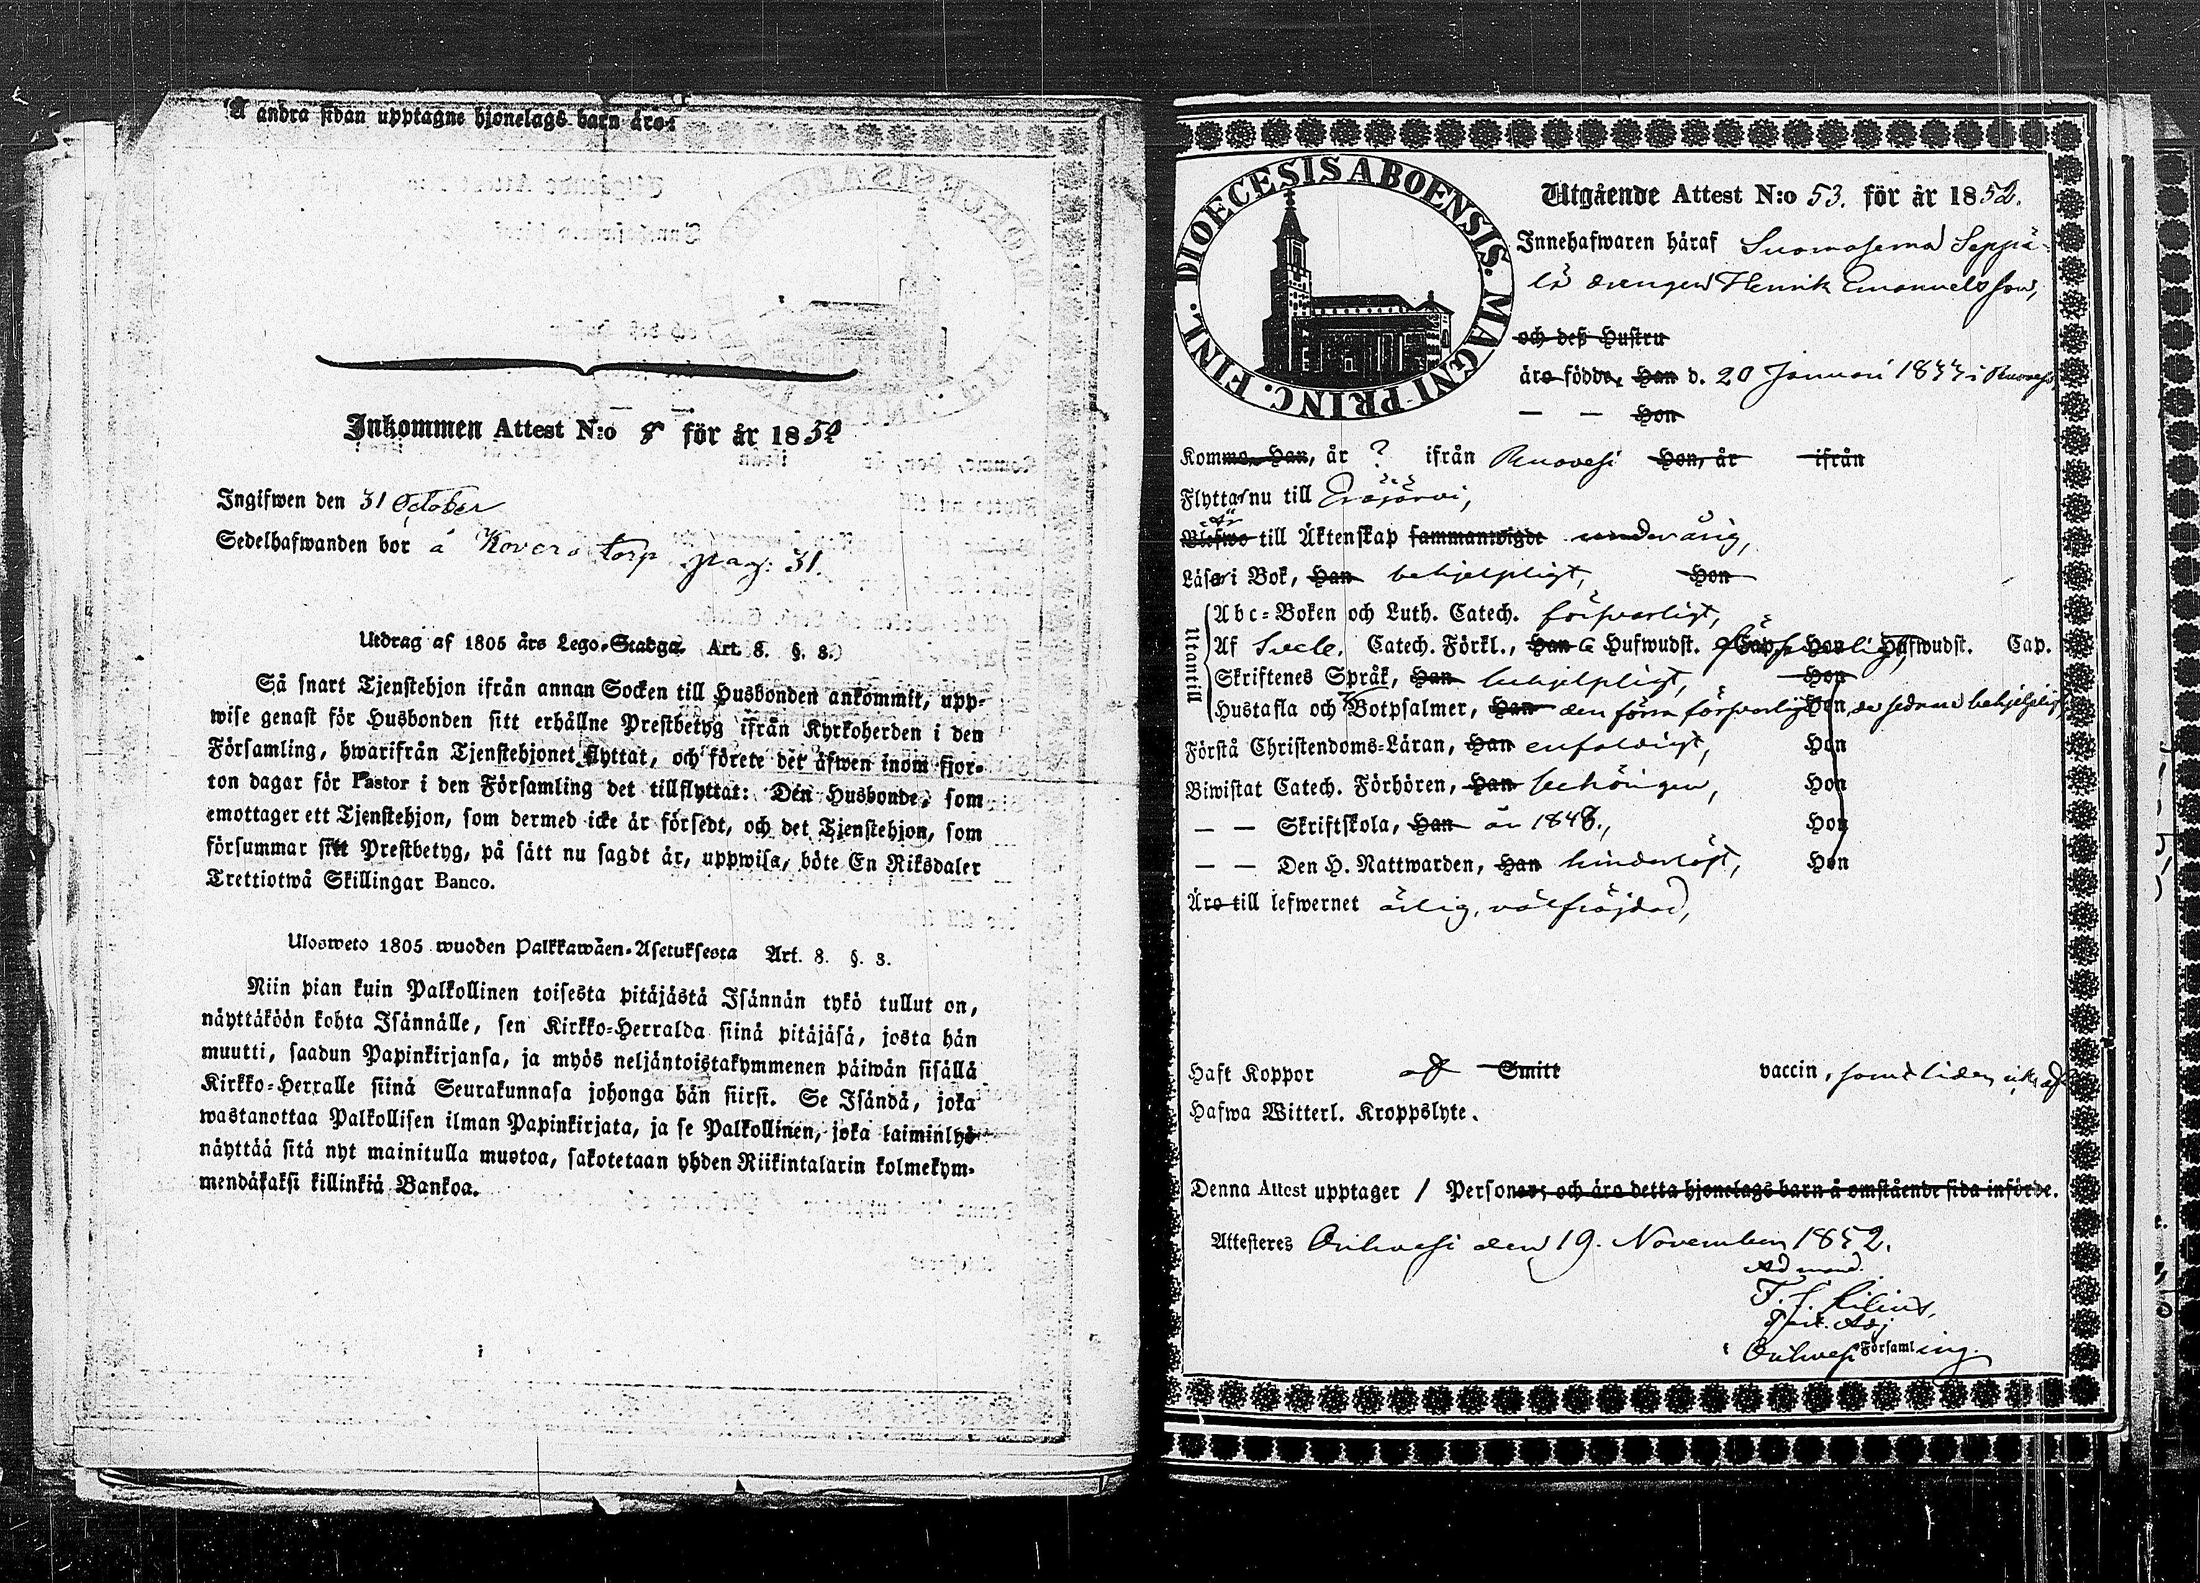 Å andra sidan upptagne hjonelags barn äro:
Inkommen Attest N:o 8 för år 1852
Ingifwen den 31 October
Sedelhafwanden bor å Kovero torp pag: 31.
Utdrag af 1805 års Lego-Stadga Art. 8. §. 3.
Så snart Tjenstehjon ifrån annan Socken till Husbonden ankommit, upp-
wise genast för Husbonden sitt erhållne Prestbetyg ifrån Kyrkoherden i den
Församling, hwarifrån Tjenstehjonet flyttat, och förete det äfwen inom fjor-
ton dagar för Pastor i den Församling det tillflyttat: Den Husbonde, som
emottager ett Tjenstehjon, som dermed icke är försedt, och det Tjenstehjon, som
försummar sitt Prestbetyg, på sätt nu sagdt är, uppwisa, böte En Riksdaler
Trettiotwå Skillingar Banco.
Ulosweto 1805 wuoden Palkkawäen-Asetuksesta Art. 8. §. 3.
Niin pian kuin Palkollinen toisesta pitäjästä Isännän tykö tullut on,
näyttäköön kohta Isännälle, sen Kirkko-Herralda siinä pitäjäsä, josta hän
muutti, saadun Papinkirjansa, ja myös neljäntoistakymmenen päiwän sisällä
Kirkko-Herralle siinä Seurakunnasa johonga hän siirsi. Se Isändä, joka
wastanottaa Palkollisen ilman Papinkirjata, ja se Palkollinen, joka laiminlyö
näyttää sitä nyt mainitulla muotoa, sakotetaan yhden Riikintalarin kolmekym-
mendäkaksi killinkiä Bankoa.
DIOECESIS ABOENSIS. MAGNI PRINC. FINL.
Utgående Attest N:o 53. för år 1852.
Innehafwaren häraf Suomasema Seppä-
lä drengen Henrik Emanuelsson,
och deß Hustru
äro födde, Han d. 20 Januari 1833 i Ruovesi
— — Hon
Komme Han, år ? ifrån Ruovesi Hon, år ifrån
Flytta nu till Eräjärvi,
Är
Blefwo till Äktenskap sammanwigde underårig,
Läsa i Bok, Han behjelpligt, Hon
Utantill
Abc-Boken och Luth. Catech. försvarligt,
Af Svebe. Catech. Förkl., Han 6 Hufwudst. Cap. Hon Hufwudst. Cap.
Skriftenes Språk, Han behjelpligt, Hon
Hustafla och Botpsalmer, Han den förra försvarligt Hon, de sednare behjelpligt
Förstå Christendoms-Läran, Han enfaldigt, Hon
Biwistat Catech. Förhören, Han behörigen, Hon
— — Skriftskola, Han år 1848., Hon
— — Den H. Nattwarden, Han hinderlöst, Hon
Äro till lefwernet ärlig, välfräjdad,
Haft Koppor af Smitt vaccin,
Hafwa Witterl. Kroppslyte.
Denna Attest upptager 1 Personer; och äro detta hjonelags barn å omstående sida införde.
Attesteres Orihvesi den 19. November 1852.
Ad mand.
Past. Adj
i Orihvesi Församling.